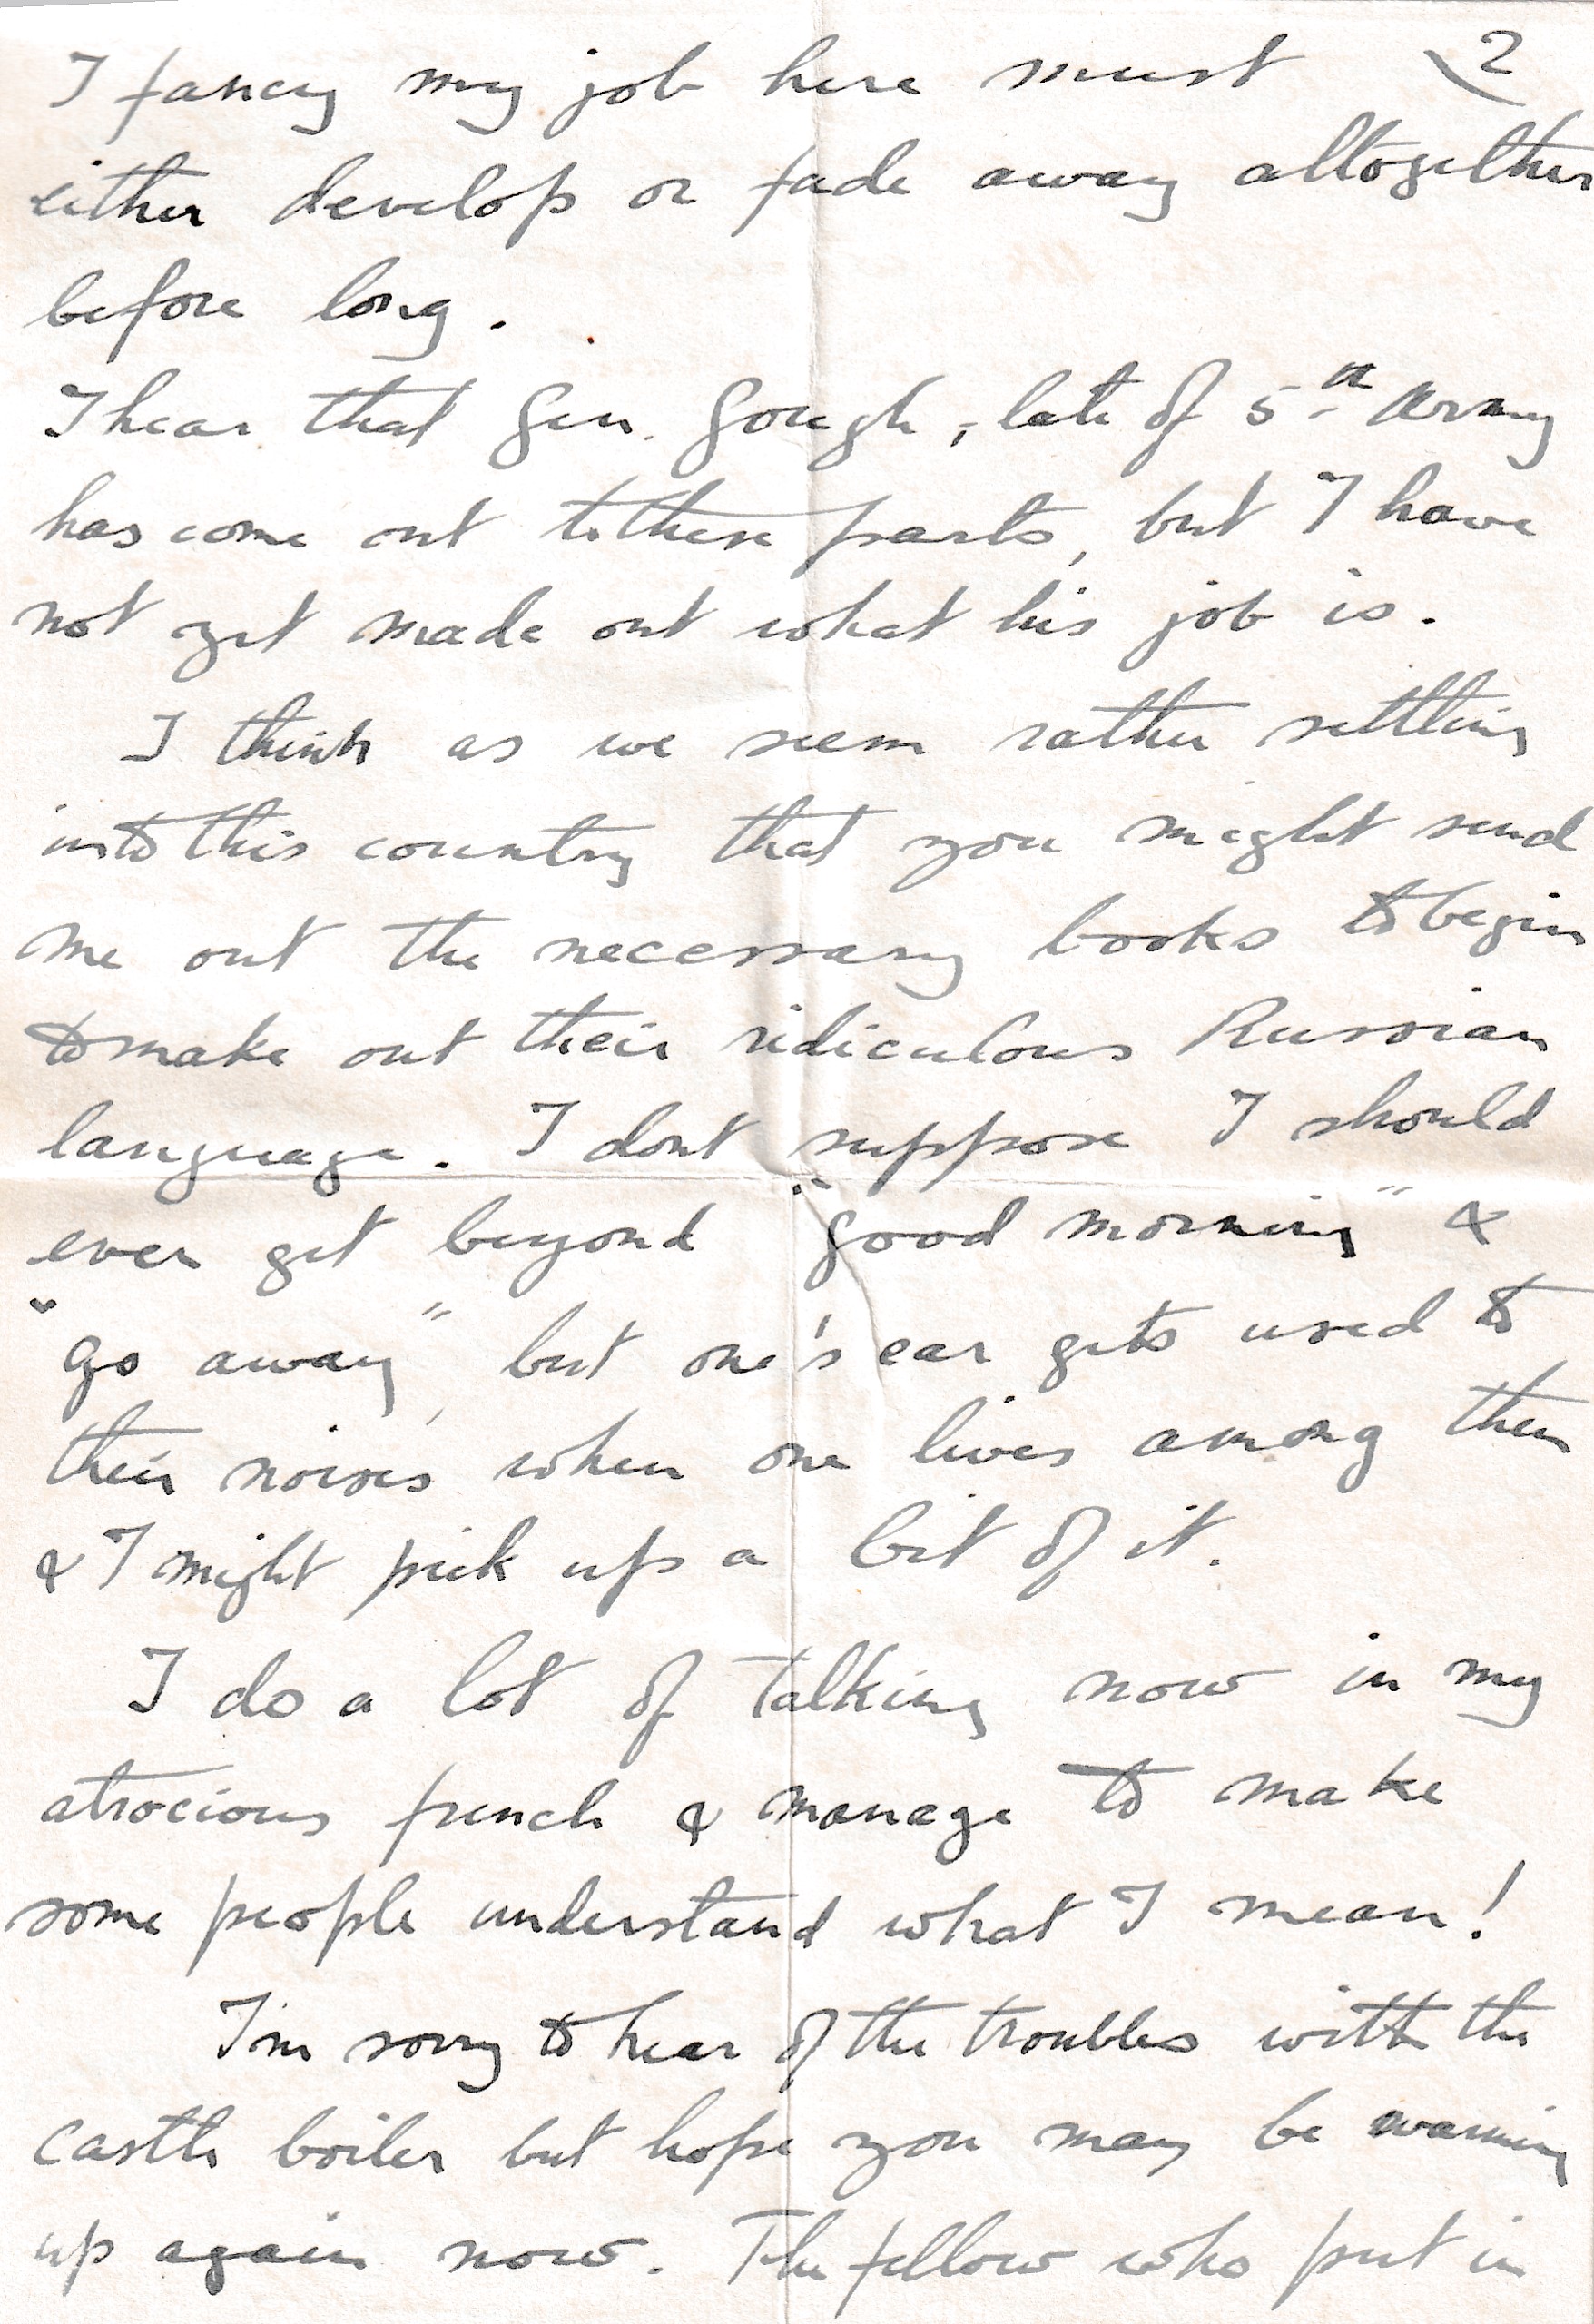 I fancy my job here must 2
either develop or fade away altogether
before long.
I hear that Gen. Gough, late of 5th Army
has come out to these parts, but I have
not yet made out what his job is.
I think as we seem rather settling
into this country that you might send
me out the necessary books to begin
to make out their ridiculous Russian
language. I dont suppose I should
ever get beyond "good morning" &
"go away", but one's ear gets used to
their noises when one lives among them
& I might pick up a bit of it.
I do a lot of talking now in my
atrocious french & manage to make
some people understand what I mean!
I'm sorry to hear of the troubles with the
castle boiler but hope you may be warming
up again now. The fellow who put in